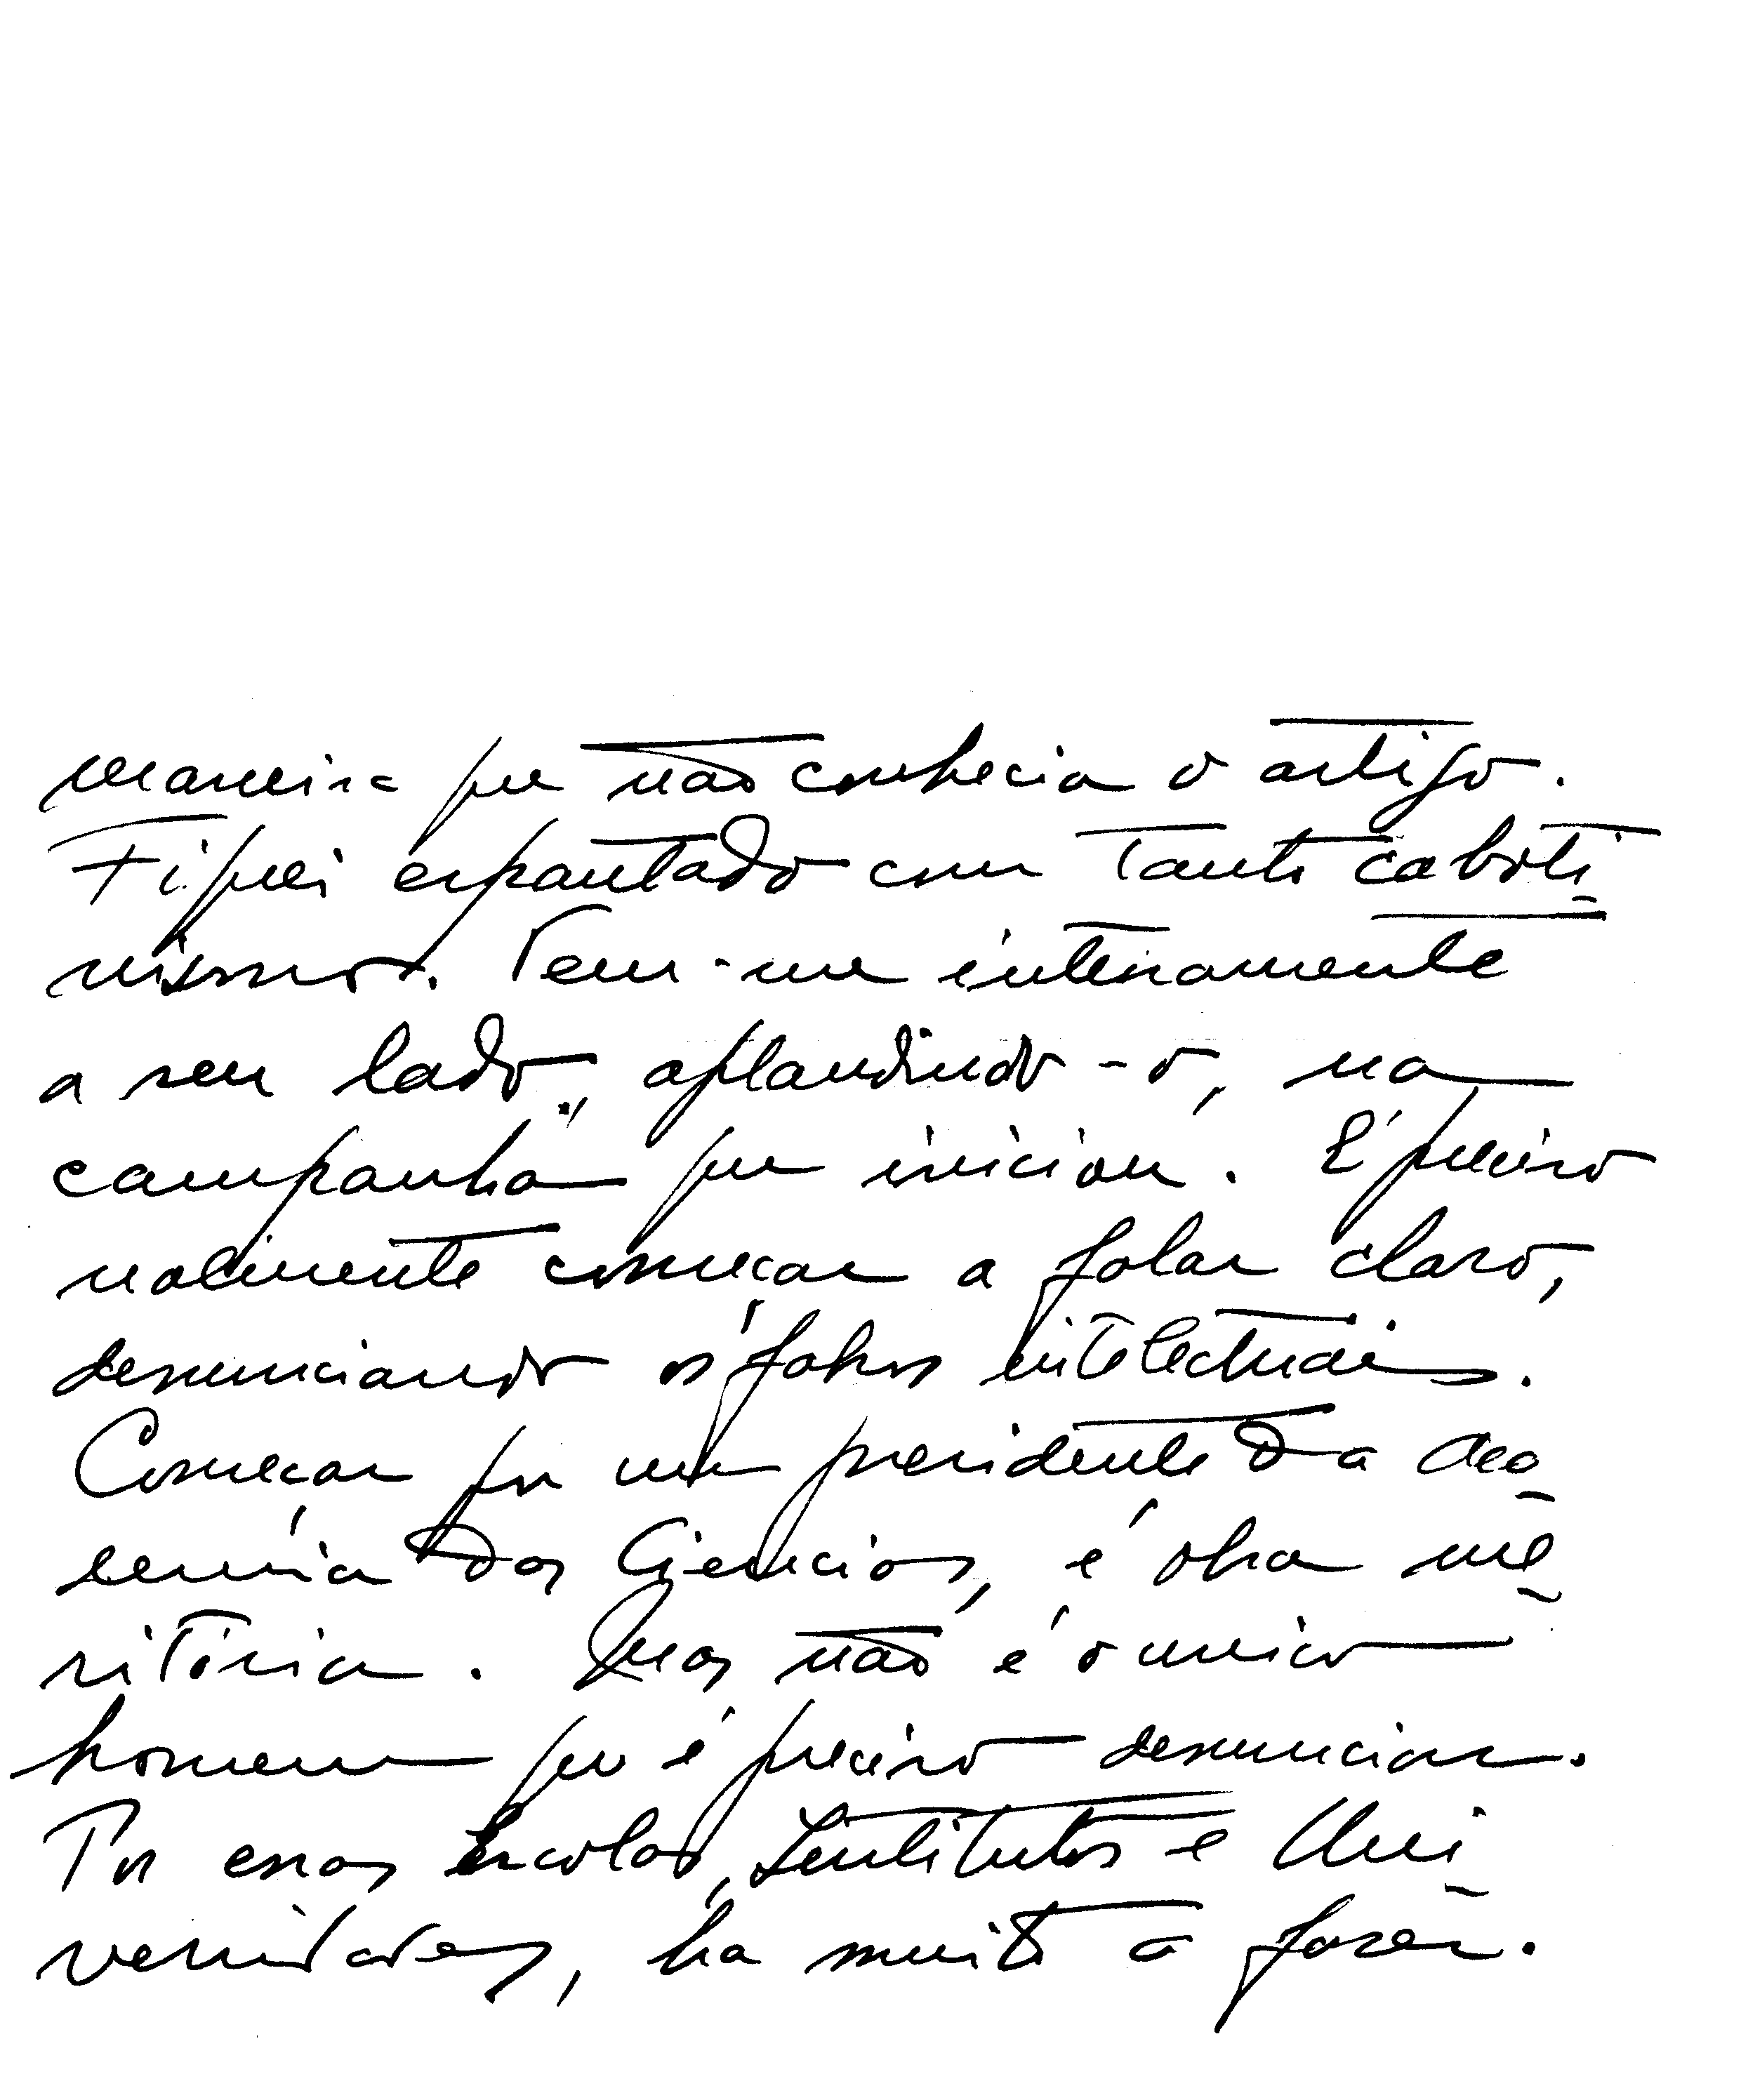 maneira que não conhecia o artigo.
Fiquei espantado com tanto caboti-
nismo. Tem-me inteiramente
a seu lado, aplaudindo-o, na
campanha que iniciou. É preciso
realmente começar a falar claro,
denunciando os falsos intelectuais.
Começar por um presidente da Aca-
demia das Ciencias, é obra me-
ritória. Mas não é o unico
homem que é preciso denunciar.
Por essas Escolas, Institutos e Uni-
versidades, ha muito a fazer.